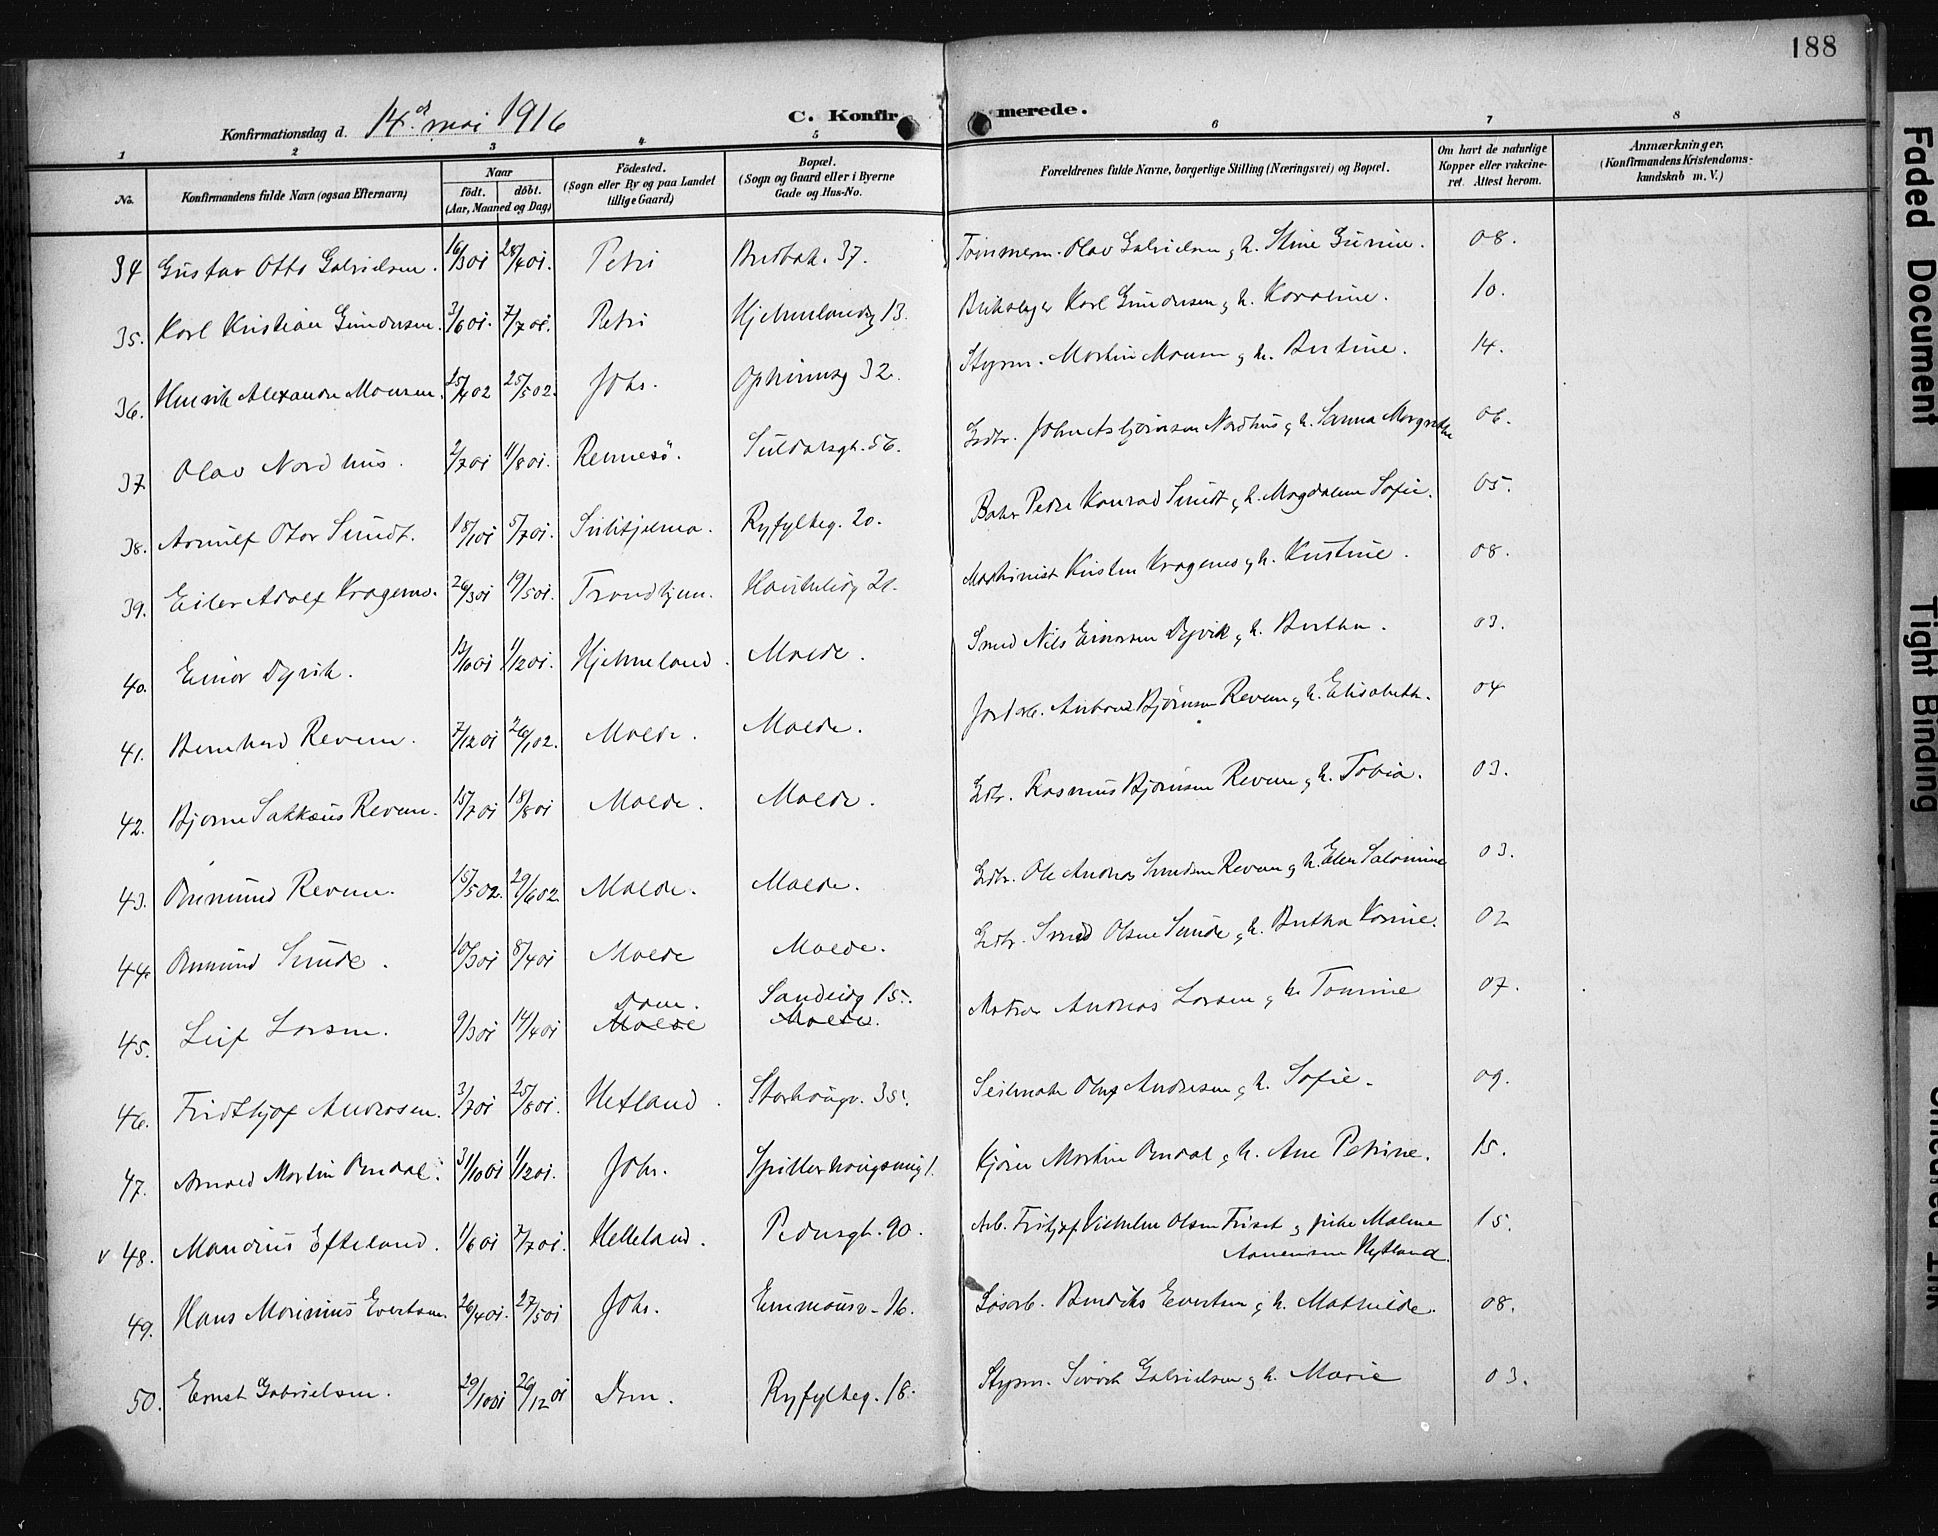 188
Konfirmationsdag d. 14d. mai 1916 C. Konfirmerede.
1 2 3 4 5 6 7 8
No. Konfirmandens fulde Navn (ogsaa Efternavn) Naar født. døbt. (Aar, Maaned og Dag) Födested. (Sogn eller By og paa Landet tillige Gaard) Bopæl. (Sogn og Gaard eller i Byerne Gade og Hus-No. Forældrenes fulde Navne, borgerlige Stilling (Næringsvei) og Bopæl. Om havt de naturlige Kopper eller vakcineret. Attest herom. Anmærkninger. (Konfirmandens Kristendomskundskab m. V.)
34 Gustav Otto Gabrielsen. 16/3 01 28/4 01. Petri Bredbak. 37. Tömmerm. Olav Gabrielsen g. h. Stine Gurine. 08.
35. Karl Kristian Gundersen. 3/6 01. 7/7 01. Petri Hjelmelandsg 13. Blikslager Karl Gundersen g. h. Karoline. 10.
36. Henrik Alexander Monsen. 25/4 02 25/5 02. Johs. Opheimsg 32. Styrm. Martin Monsen g. h. Bertine. 14.
37 Olav Nordhus. 2/7 01 11/8 01. Rennesö. Suldalsgt. 56. Gdbr. John Asbjörnsen Nordhus g. h. Sanna Margrethe 06.
38. Arnulf Otar Sundt. 18/1 01 5/7 01. Sulitjelma. Ryfylkeg. 20. Baker Peder Konrad Sundt g. h. Magdalene Sofie. 05.
39. Eiler Adolf Kragenes. 26/3 01 19/5 01. Trondhjem. Haukelidg 21. Maskinist Kristen Kragenes g. h. Kristine. 08.
40. Einar Dyvik. 13/10 01 1/12 01. Hjelmeland. Molde. Smed Nils Einarsen Dyvik g. h. Bertha. 03.
41. Bernhard Revem. 7/12 01 26/1 02. Molde. Molde. Jordarb. Anbond Bjørnsen Revem g. h. Elisabeth. 04
42. Bjorne Sakkæus Revem. 15/7 01 18/8 01 Molde. Molde. Gdbr. Rasmus Bjørnsen Revem g. h. Tobia. 03.
43. Omund Revem. 15/5 02. 29/6 02. Molde. Molde. Gdbr. Ole Andreas Smedsen Revem g. h. Elen Salomine 03.
44. Omund Sunde. 10/3 01 8/4 01 Molde Molde. Gdbr. Smed Olsen Sunde g. h. Bertha Karine. 02
45. Leif Larsen. 9/3 01 14/4 01 Dom. Molde Sandeidg 15. Molde. Matros Andreas Larsen g. h. Tomine 07.
46. Fridthjof Andersen. 3/7 01 25/8 01. Hetland. Storhougv. 35. Seilmaker Oluf Andersen g. h. Sofie. 09.
47. Arnold Martin Omdal. 31/10 01 1/12 01. Johs. Spilderhougsmug 1. Kjörer Martin Omdal g. h. Ane Petrine. 15.
v 48. Mandius Efteland. 1/6 01 7/7 01. Helleland. Pedersgt. 90. Arb. Fritjof Vilhelm Olsen Friset g pike Malene 15.
Aanensen Nytland.
49. Hans Marinius Evertsen. 26/4 01. 27/5 01 Johs. Emmausv. 16. Løsarb. Bendiks Evertsen g. h. Mathilde. 08.
50. Ernst Gabrielsen. 29/10 01 26/12 01 Dom. Ryfylkeg. 18. Styrm. Sivert Gabrielsen g. h. Marie 03.
Faded Document
Tight Binding